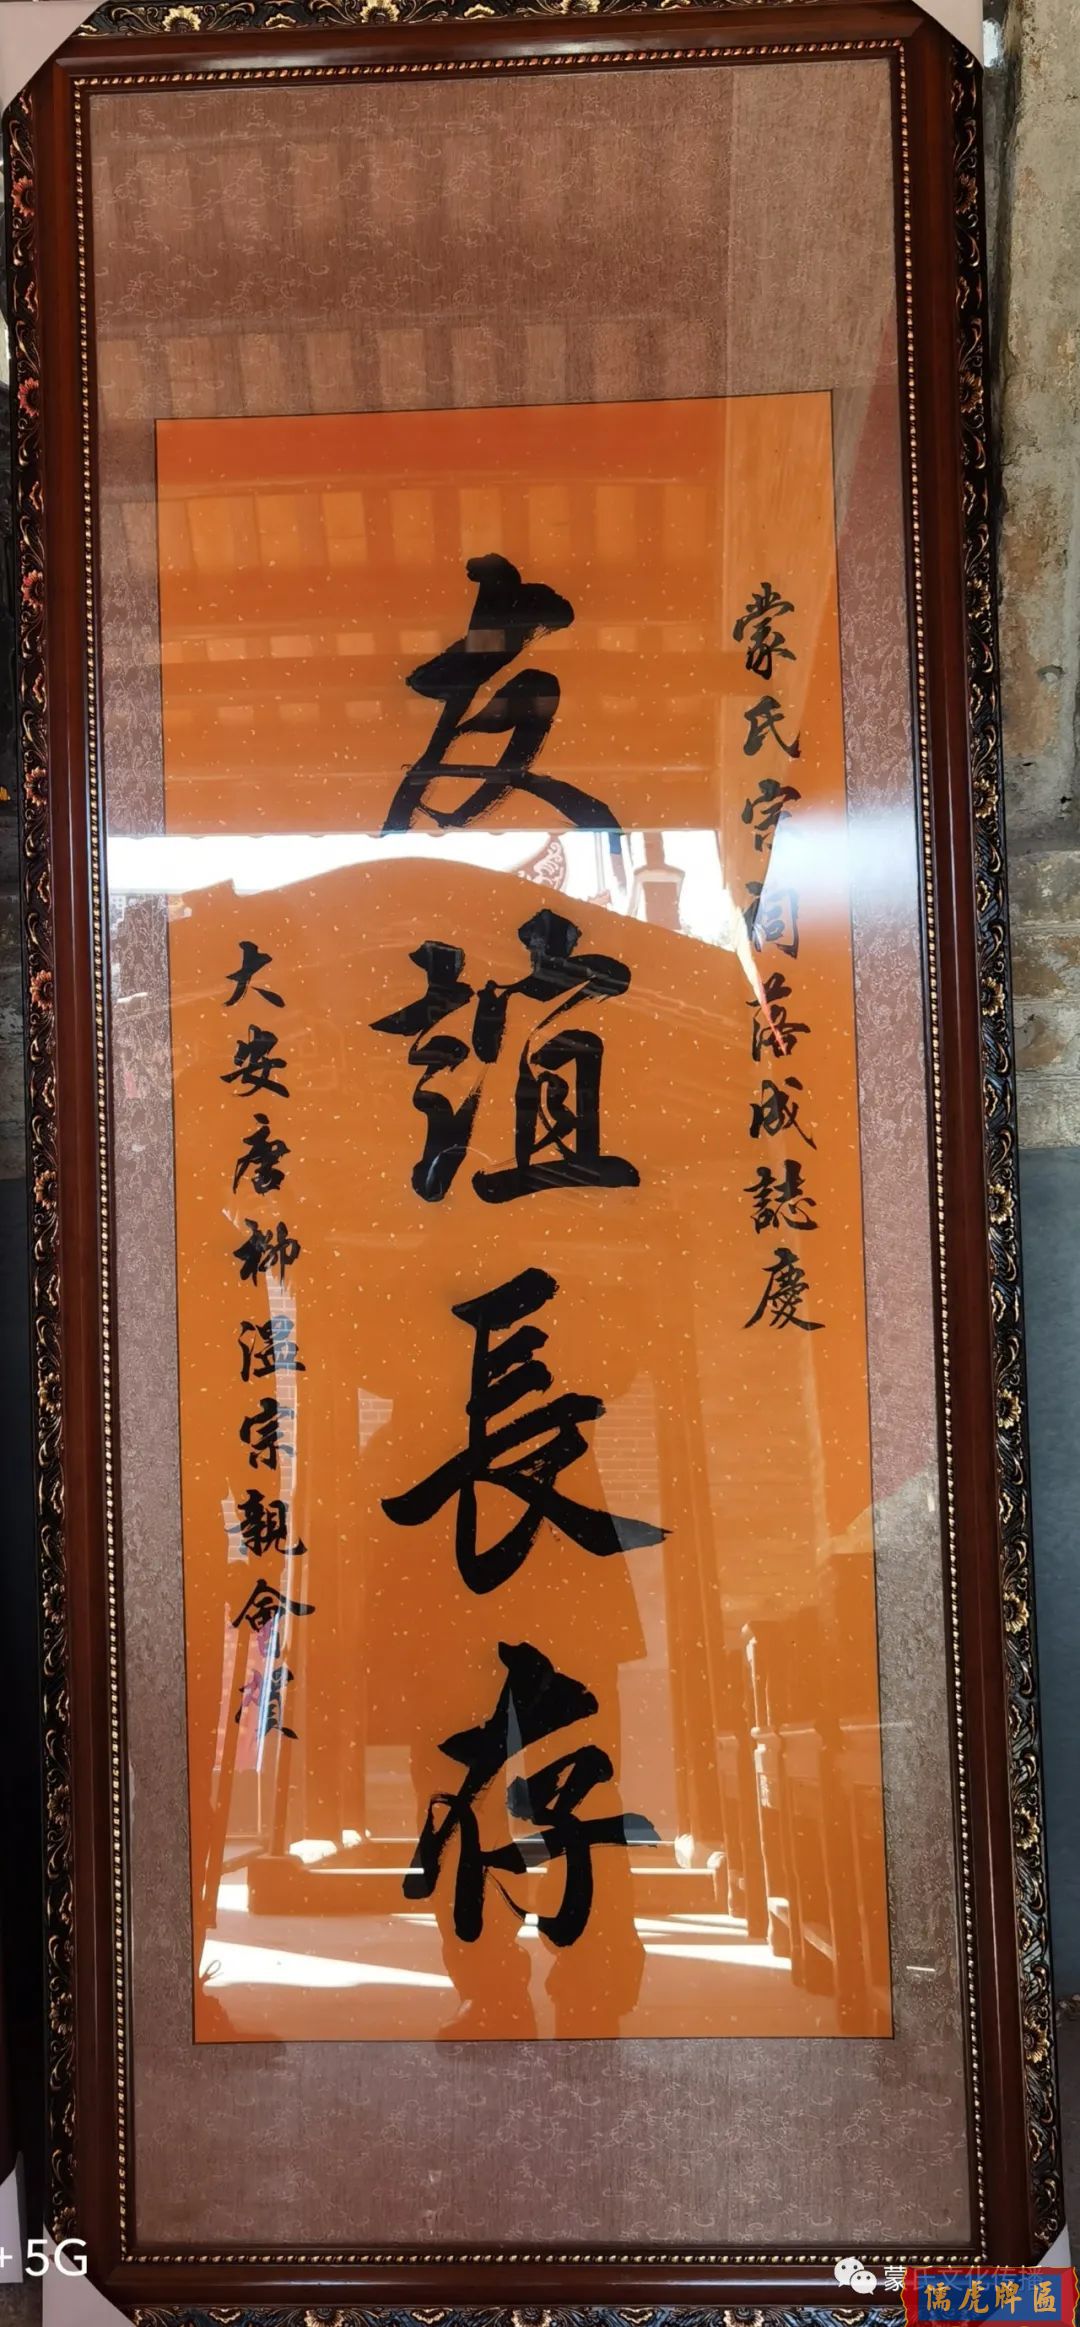 蒙氏宗祠落成誌慶
友誼長存
大安唐柳溫宗親會賀
+ 5G
蒙氏文化传播
儒虎牌匾